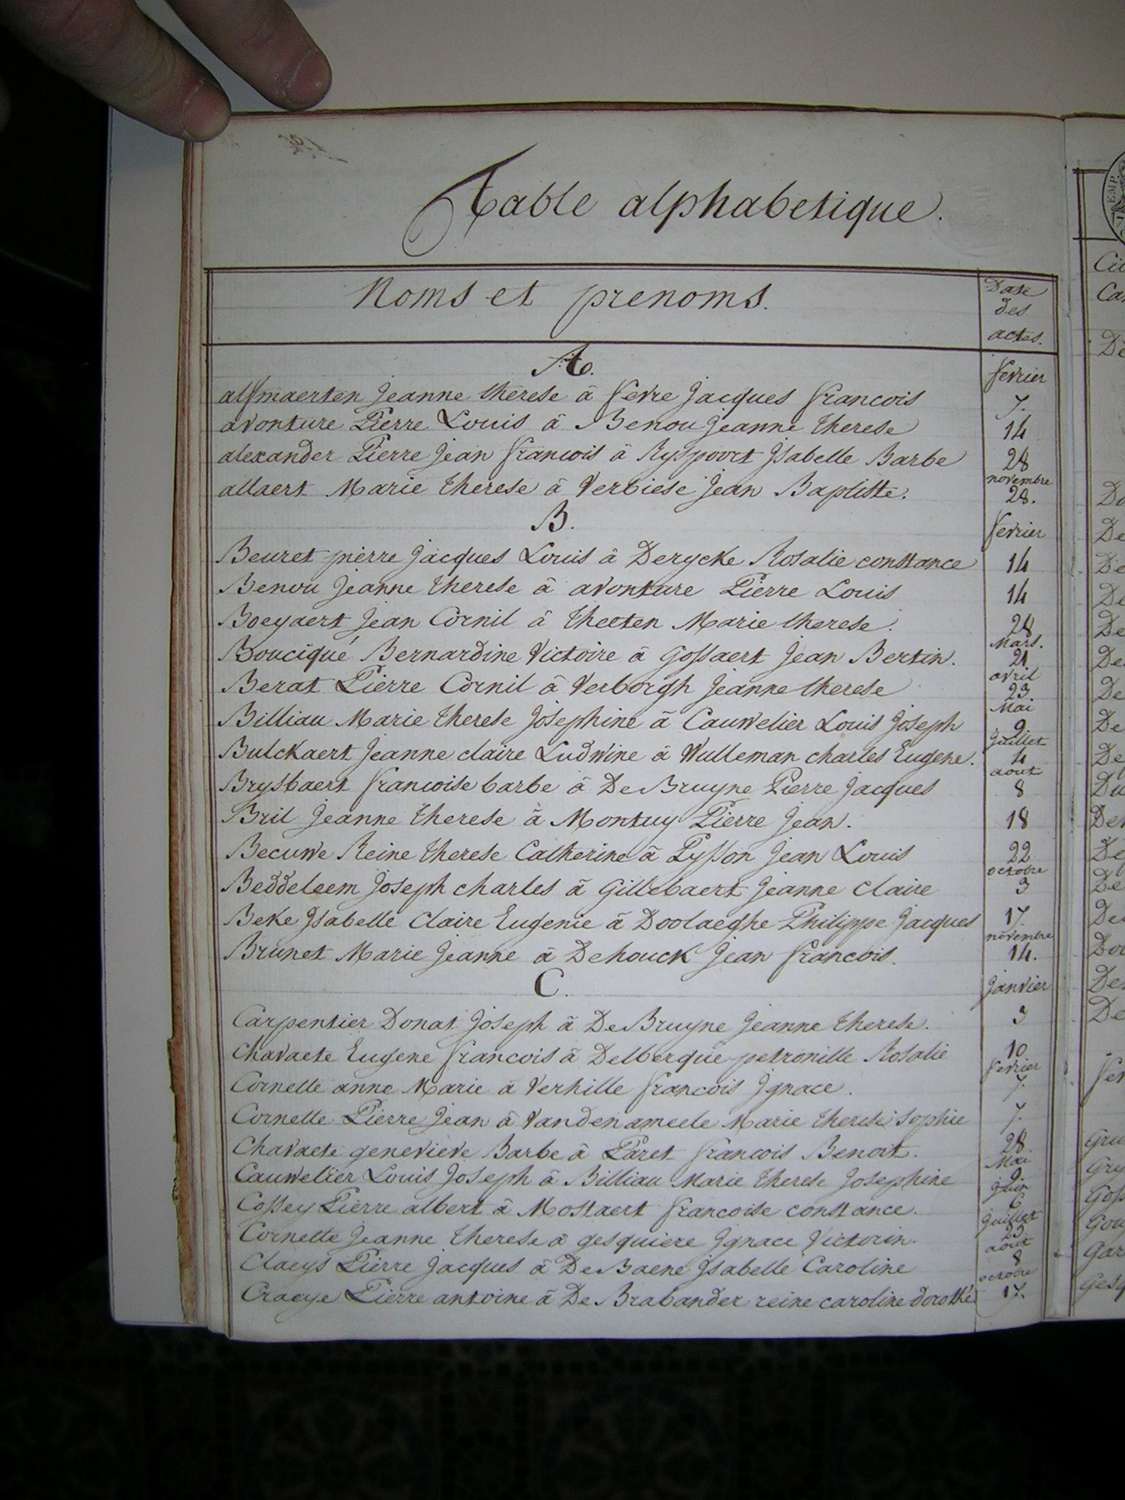 Table alphabetique.
Noms et prenoms.
Date
des
actes.
A.
fevrier
alsmaerten Jeanne therese à fevre Jacques francois 7.
avonture Pierre Louis à Benou Jeanne therese 14
alexander Pierre Jean francois à Ryspoort Isabelle Barbe 28
novembre
allaert Marie therese à Verbiese Jean Baptiste. 28.
B.
fevrier
Beuret pierre Jacques Louis à Derycke Rosalie constance 14
Benou Jeanne therese à avonture Pierre Louis 14
Boeyaert Jean Cornil à theeten Marie therese. 28
Mars.
Bouciqué Bernardine Victoire à Gossaert Jean Bertin. 21
avril
Berat Pierre Cornil à Verborgh Jeanne therese 23
Mai
Billiau Marie therese Josephine à Cauwelier Louis Joseph 9
Juillet
Bulckaert Jeanne claire Ludwine à Wulleman charles Eugene. 4
aout
Brysbaert francoise barbe à De Bruyne Pierre Jacques 8
Bril Jeanne therese à Montuy Pierre Jean. 18
Becuwe Reine therese Catherine à Pysson Jean Louis 22
octobre
Beddeleem Joseph charles à Gillebaert Jeanne claire 3
Beke Isabelle Claire Eugenie à Doolaeghe Philippe Jacques 17
novembre
Brunet Marie Jeanne à Dehouck Jean francois. 14.
C.
Janvier
Carpentier Donat Joseph à De Bruyne Jeanne therese. 3
Chavaete Eugene francois à Delberque petronille Rosalie 10
fevrier
Cornette anne Marie à Verhille francois Ignace. 7
Cornette Pierre Jean à Vandenameele Marie therese sophie 7.
Chavaete genevieve Barbe à Paret francois Benoit. 28
Mai
Cauwelier Louis Joseph à Billiau Marie therese Josephine 9
Juin
Cossey Pierre albert à Mostaert francoise constance. 6
Juillet
Cornette Jeanne therese à gesquiere Ignace Victorin. 25
aout
Claeys Pierre Jacques à De Baene Isabelle Caroline 8
octobre
Craeye Pierre antoine à De Brabander reine caroline dorothé 17.